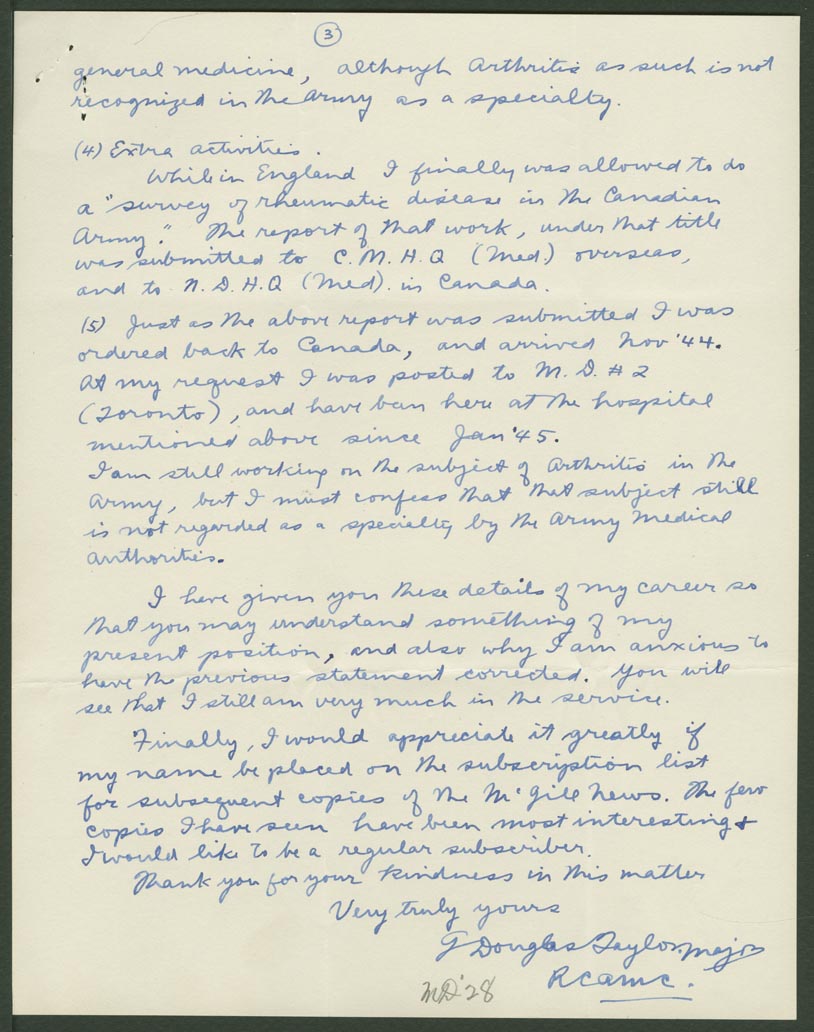 3
general medicine, although Arthritis as such is not
recognized in the Army as a specialty.
(4) Extra activities.
While in England I finally was allowed to do
a "survey of rheumatic disease in the Canadian
Army." The report of that work, under that title
was submitted to C.M.H.Q (Med.) overseas,
and to N.D.H.Q (Med). in Canada.
(5) Just as the above report was submitted I was
ordered back to Canada, and arrived Nov '44.
At my request I was posted to M.D. # 2
(Toronto), and have been here at the hospital
mentioned above since Jan '45.
I am still working on the subject of Arthritis in the
Army, but I must confess that that subject still
is not regarded as a specialty by the Army Medical
Authorities.
I have given you these details of my career so
that you may understand something of my
present position, and also why I am anxious to
have the previous statement corrected. You will
see that I still am very much in the service.
Finally, I would appreciate it greatly if
my name be placed on the subscription list
for subsequent copies of the McGill News. The few
copies I have seen have been most interesting &
I would like to be a regular subscriber.
Thank you for your kindness in this matter
Very truly yours
G Douglas Taylor, Major
RCAMC.
MD '28